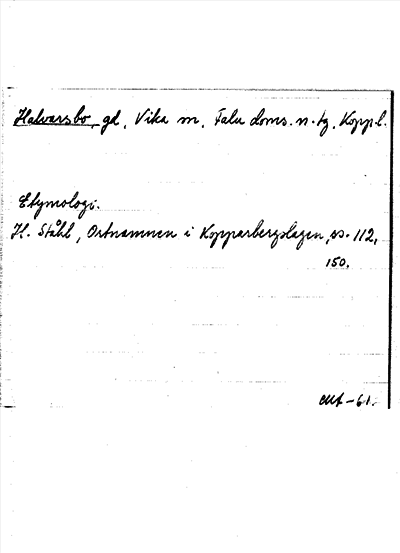 Halvarsbo, gd, Vika sn, Falu doms. n. tg, Koppl.
Etymologi.
H. Ståhl, Ortnamnen i Kopparbergslagen, ss. 112,
150.
-61.